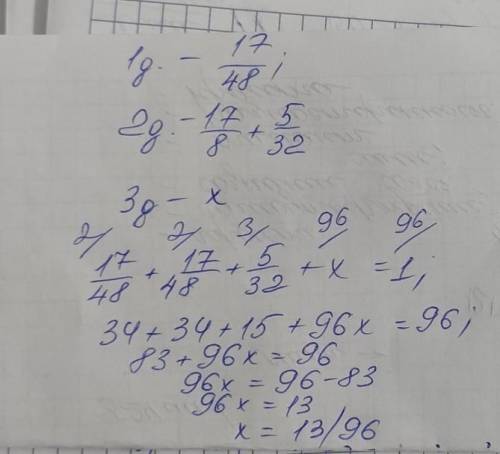 1д. - 17/48;
2д. - 17/8 + 5/32
3д - x
2/ 2/ 3/ 96/ 96/
17/48 + 17/48 + 5/32 + x = 1;
34 + 34 + 15 + 96x = 96;
83 + 96x = 96
96x = 96 - 83
96x = 13
x = 13/96